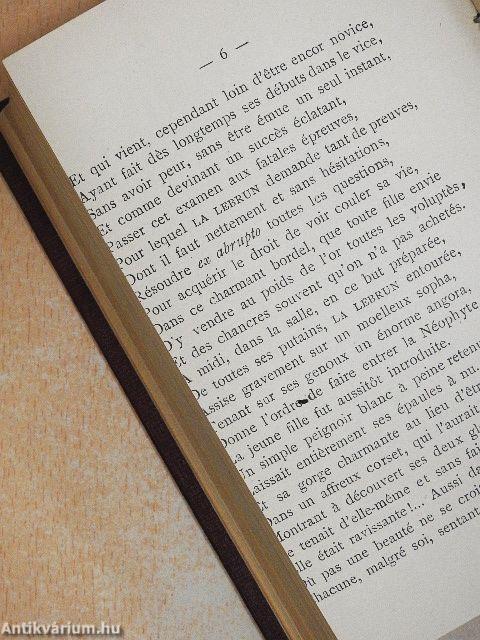 — 6 —
Et qui vient, cependant loin d'être encor novice,
Ayant fait dès longtemps ses débuts dans le vice,
Sans avoir peur, sans être émue un seul instant,
Et comme devinant un succès éclatant,
Passer cet examen aux fatales épreuves,
Pour lequel LA LEBRUN demande tant de preuves,
Dont il faut nettement et sans hésitations,
Résoudre ex abrupto toutes les questions,
Pour acquérir le droit de voir couler sa vie,
Dans ce charmant bordel, que toute fille envie
D'y vendre au poids de l'or toutes les voluptés,
Et des chancres souvent qu'on n'a pas achetés.
A midi, dans la salle, en ce but préparée,
De toutes ses putains, LA LEBRUN entourée,
Assise gravement sur un moelleux sopha,
Tenant sur ses genoux un énorme angora,
Donne l'ordre de faire entrer la Néophyte
La jeune fille fut aussitôt introduite.
Un simple peignoir blanc à peine retenu
Laissait entièrement ses épaules à nu.
Et sa gorge charmante au lieu d'êtr
Dans un affreux corset, qui l'aurait
Montrant à découvert ses deux gl
Se tenait d'elle-même et sans fai
Elle était ravissante!... Aussi da
Où pas une beauté ne se croi
Chacune, malgré soi, sentant
Antikvárium.hu